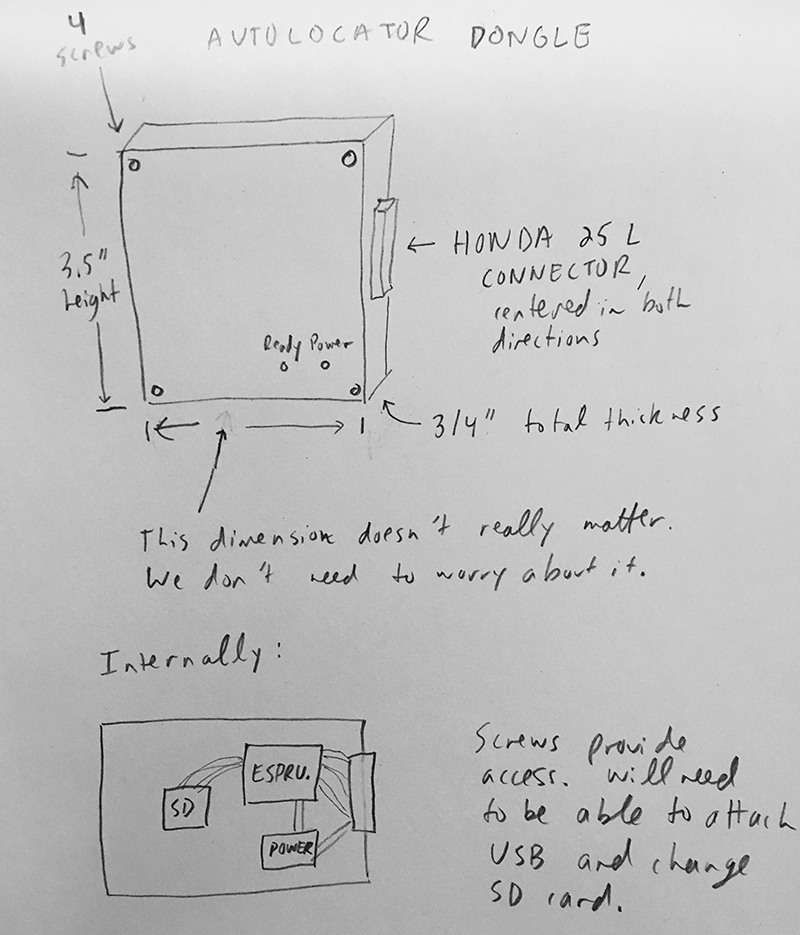 4
screws
AUTOLOCATOR DONGLE
3.5"
height
HONDA 25 L
CONNECTOR,
centered in both
directions
Ready Power
3/4" total thickness
This dimension doesn't really matter.
We don't need to worry about it.
Internally:
SD
ESPRU.
POWER
Screws provide
access. Will need
to be able to attach
USB and change
SD card.